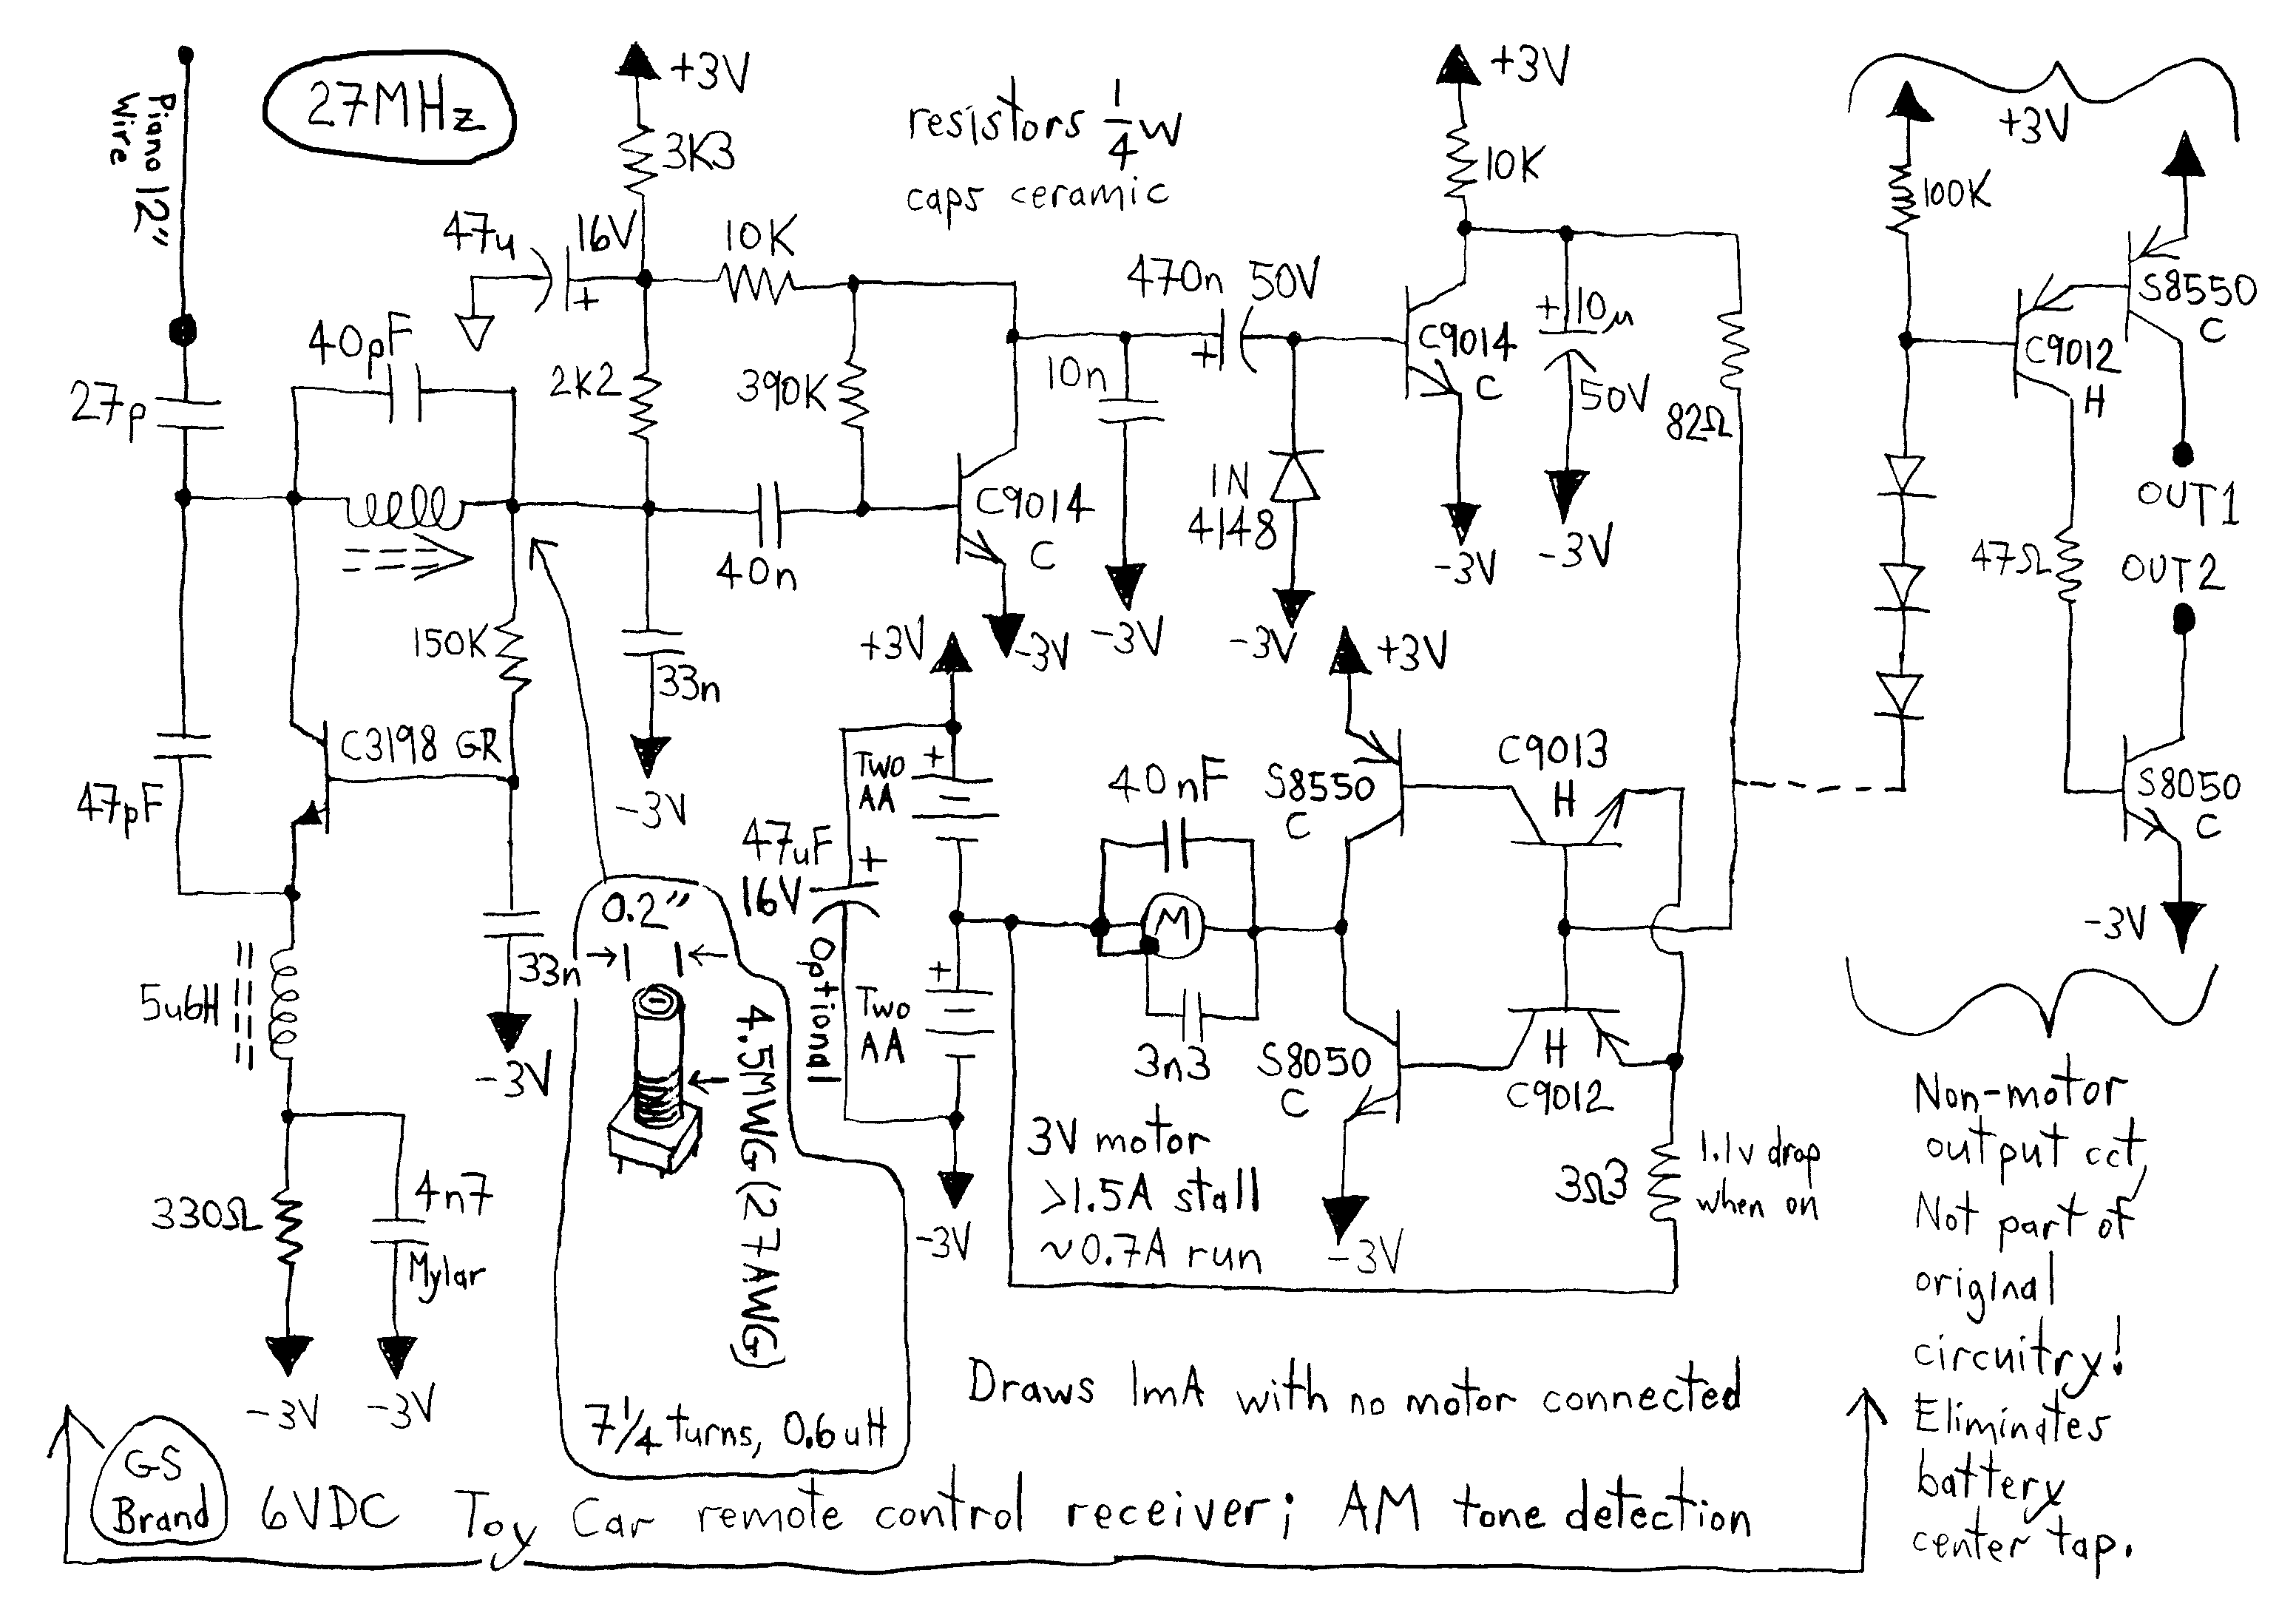 Piano 12"
Wire
27MHz
+3V
3K3
resistors 1/4 W
caps ceramic
+3V
10K
+3V
100K
47u
16V
+
10K
470n 50V
+
C9014
C
+
10µ
50V
82Ω
S8550
C
C9012
H
40pF
27p
2K2
390K
10n
C9014
C
40n
1N
4148
-3V
-3V
OUT1
OUT2
47Ω
150K
33n
-3V
-3V
-3V
-3V
+3V
+3V
C3198 GR
47pF
Two
AA
+
47uF
16V
+
Optional
40nF
S8550
C
C9013
H
S8050
C
-3V
M
3n3
Two
AA
+
-3V
S8050
C
H
C9012
-3V
3Ω3
1.1v drop
when on
33n
-3V
5u6H
330Ω
4n7
Mylar
-3V
-3V
0.2"
4.5MWG (27AWG)
7 1/4 turns, 0.6uH
3V motor
>1.5A stall
~0.7A run
Draws 1mA with no motor connected
GS
Brand
6VDC Toy Car remote control receiver; AM tone detection
Non-motor
output cct,
Not part of
original
circuitry!
Eliminates
battery
center tap.